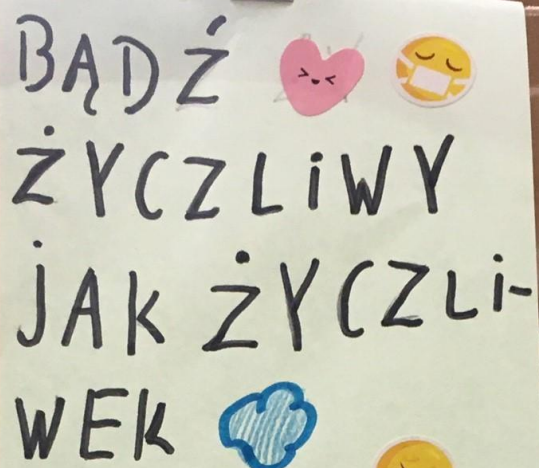 BĄDŹ
ŻYCZLiWY
jAK ŻYCZLi-
WEK